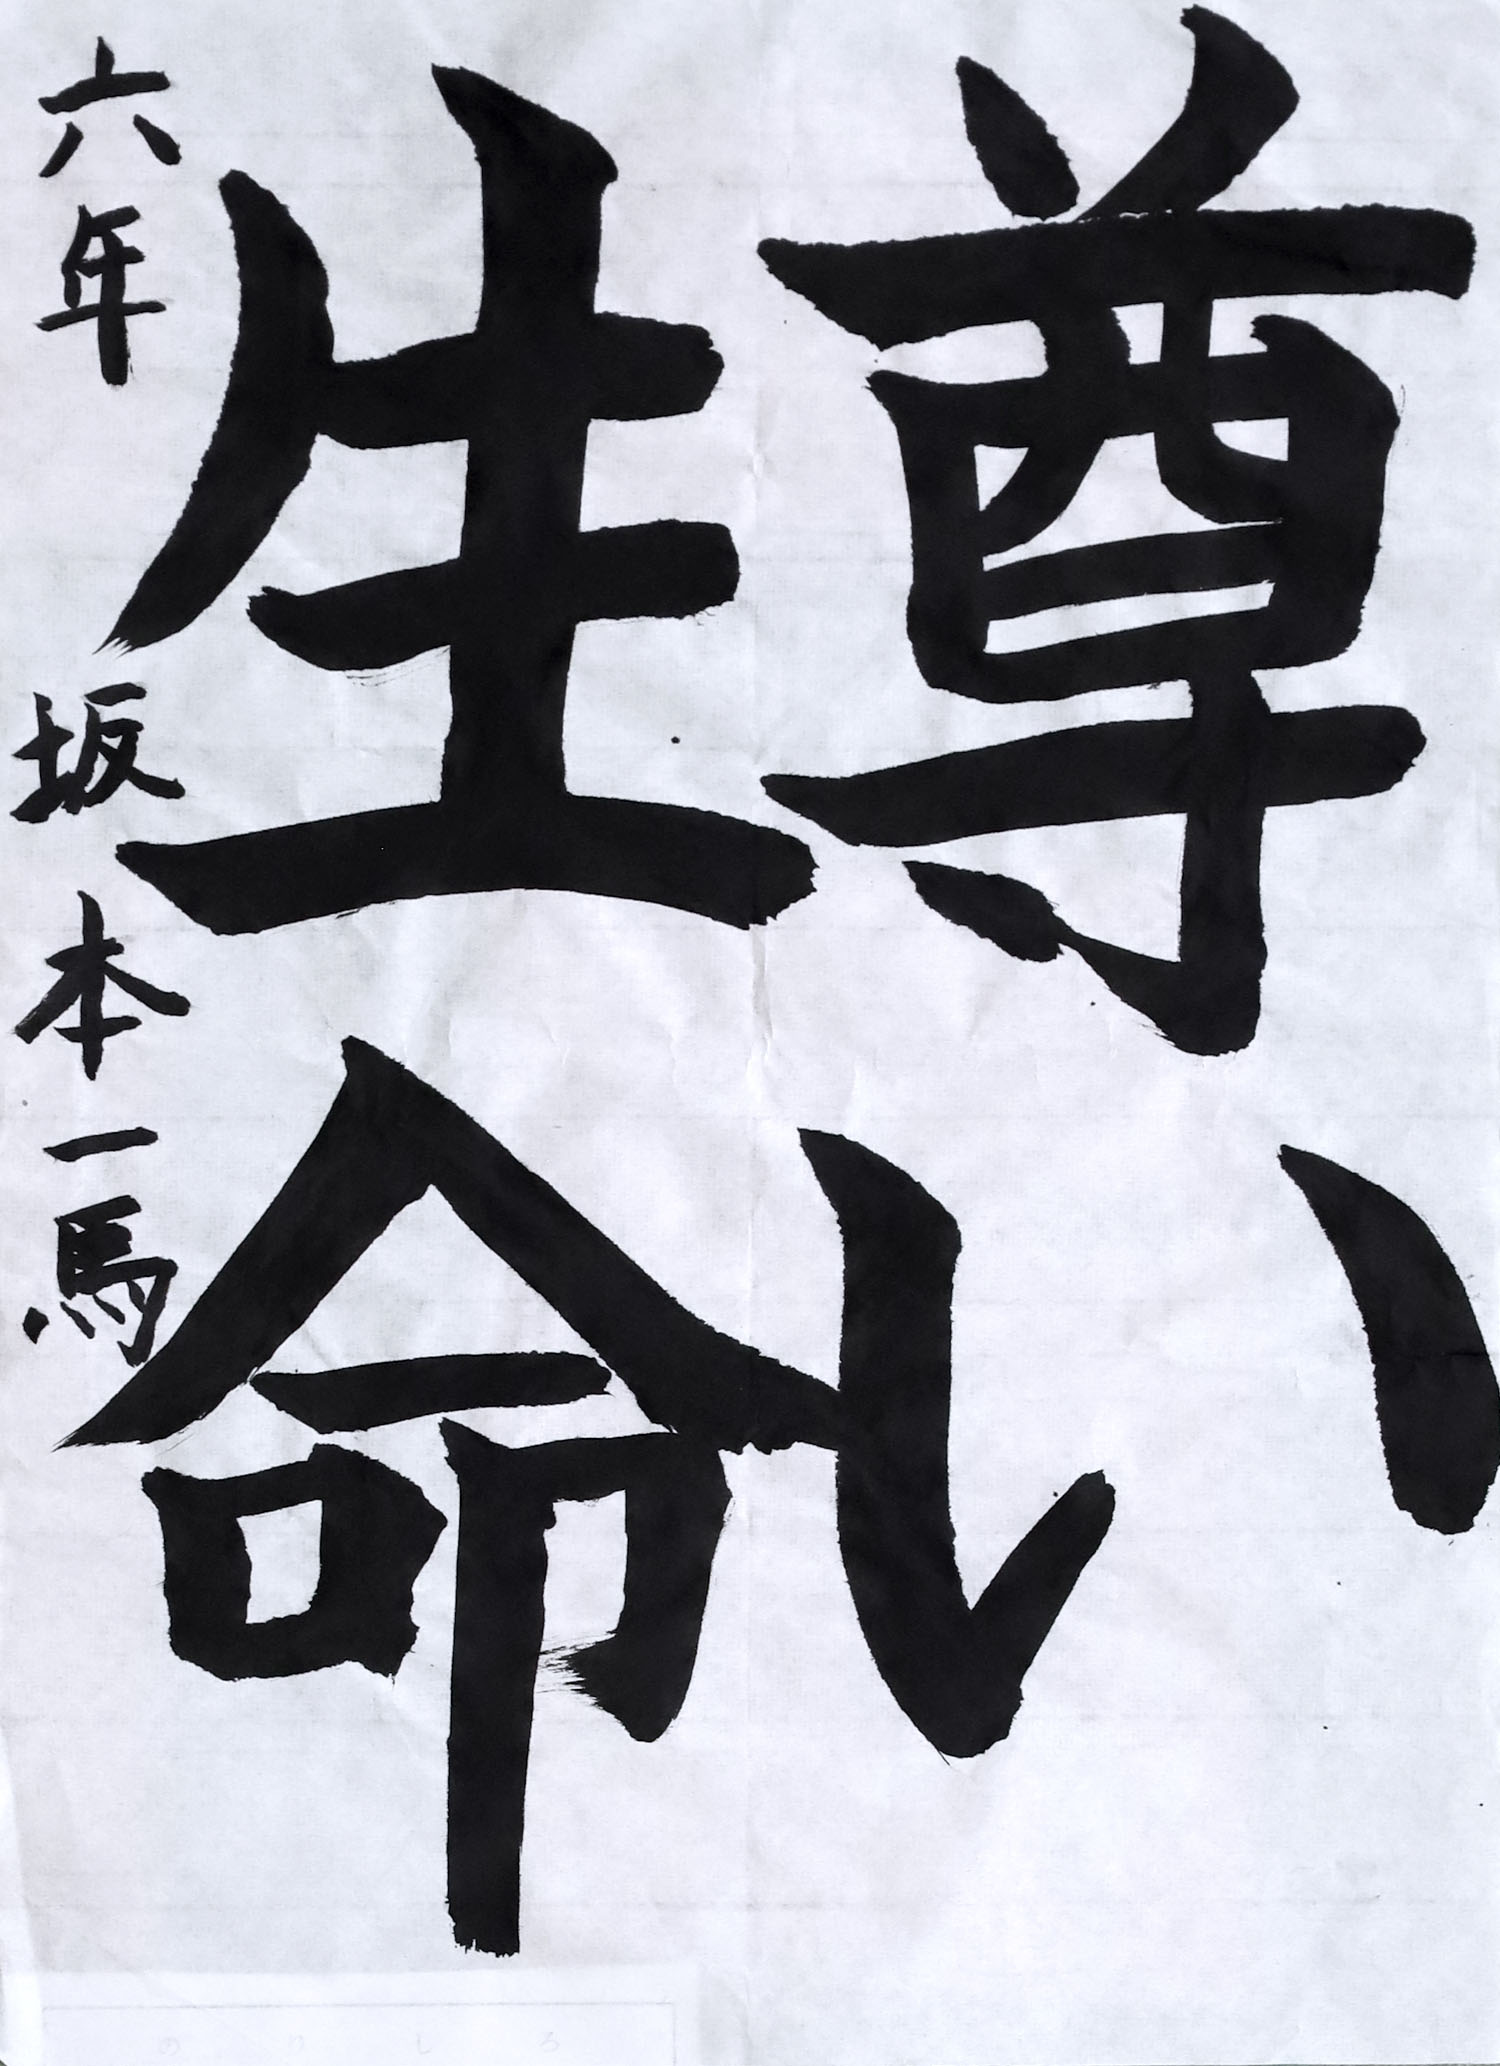 尊い
生命
六年 坂本一馬